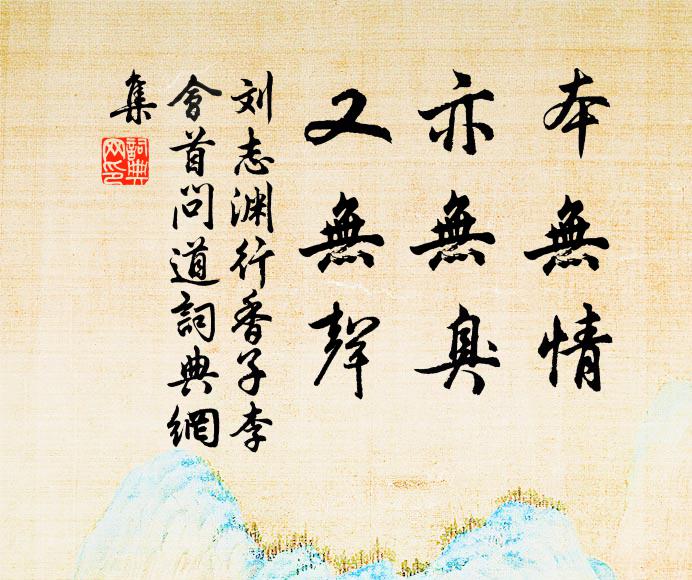 本無情
亦無臭
又無聲
刘志渊行香子李
會首問道詞典網
集
詞典
网印